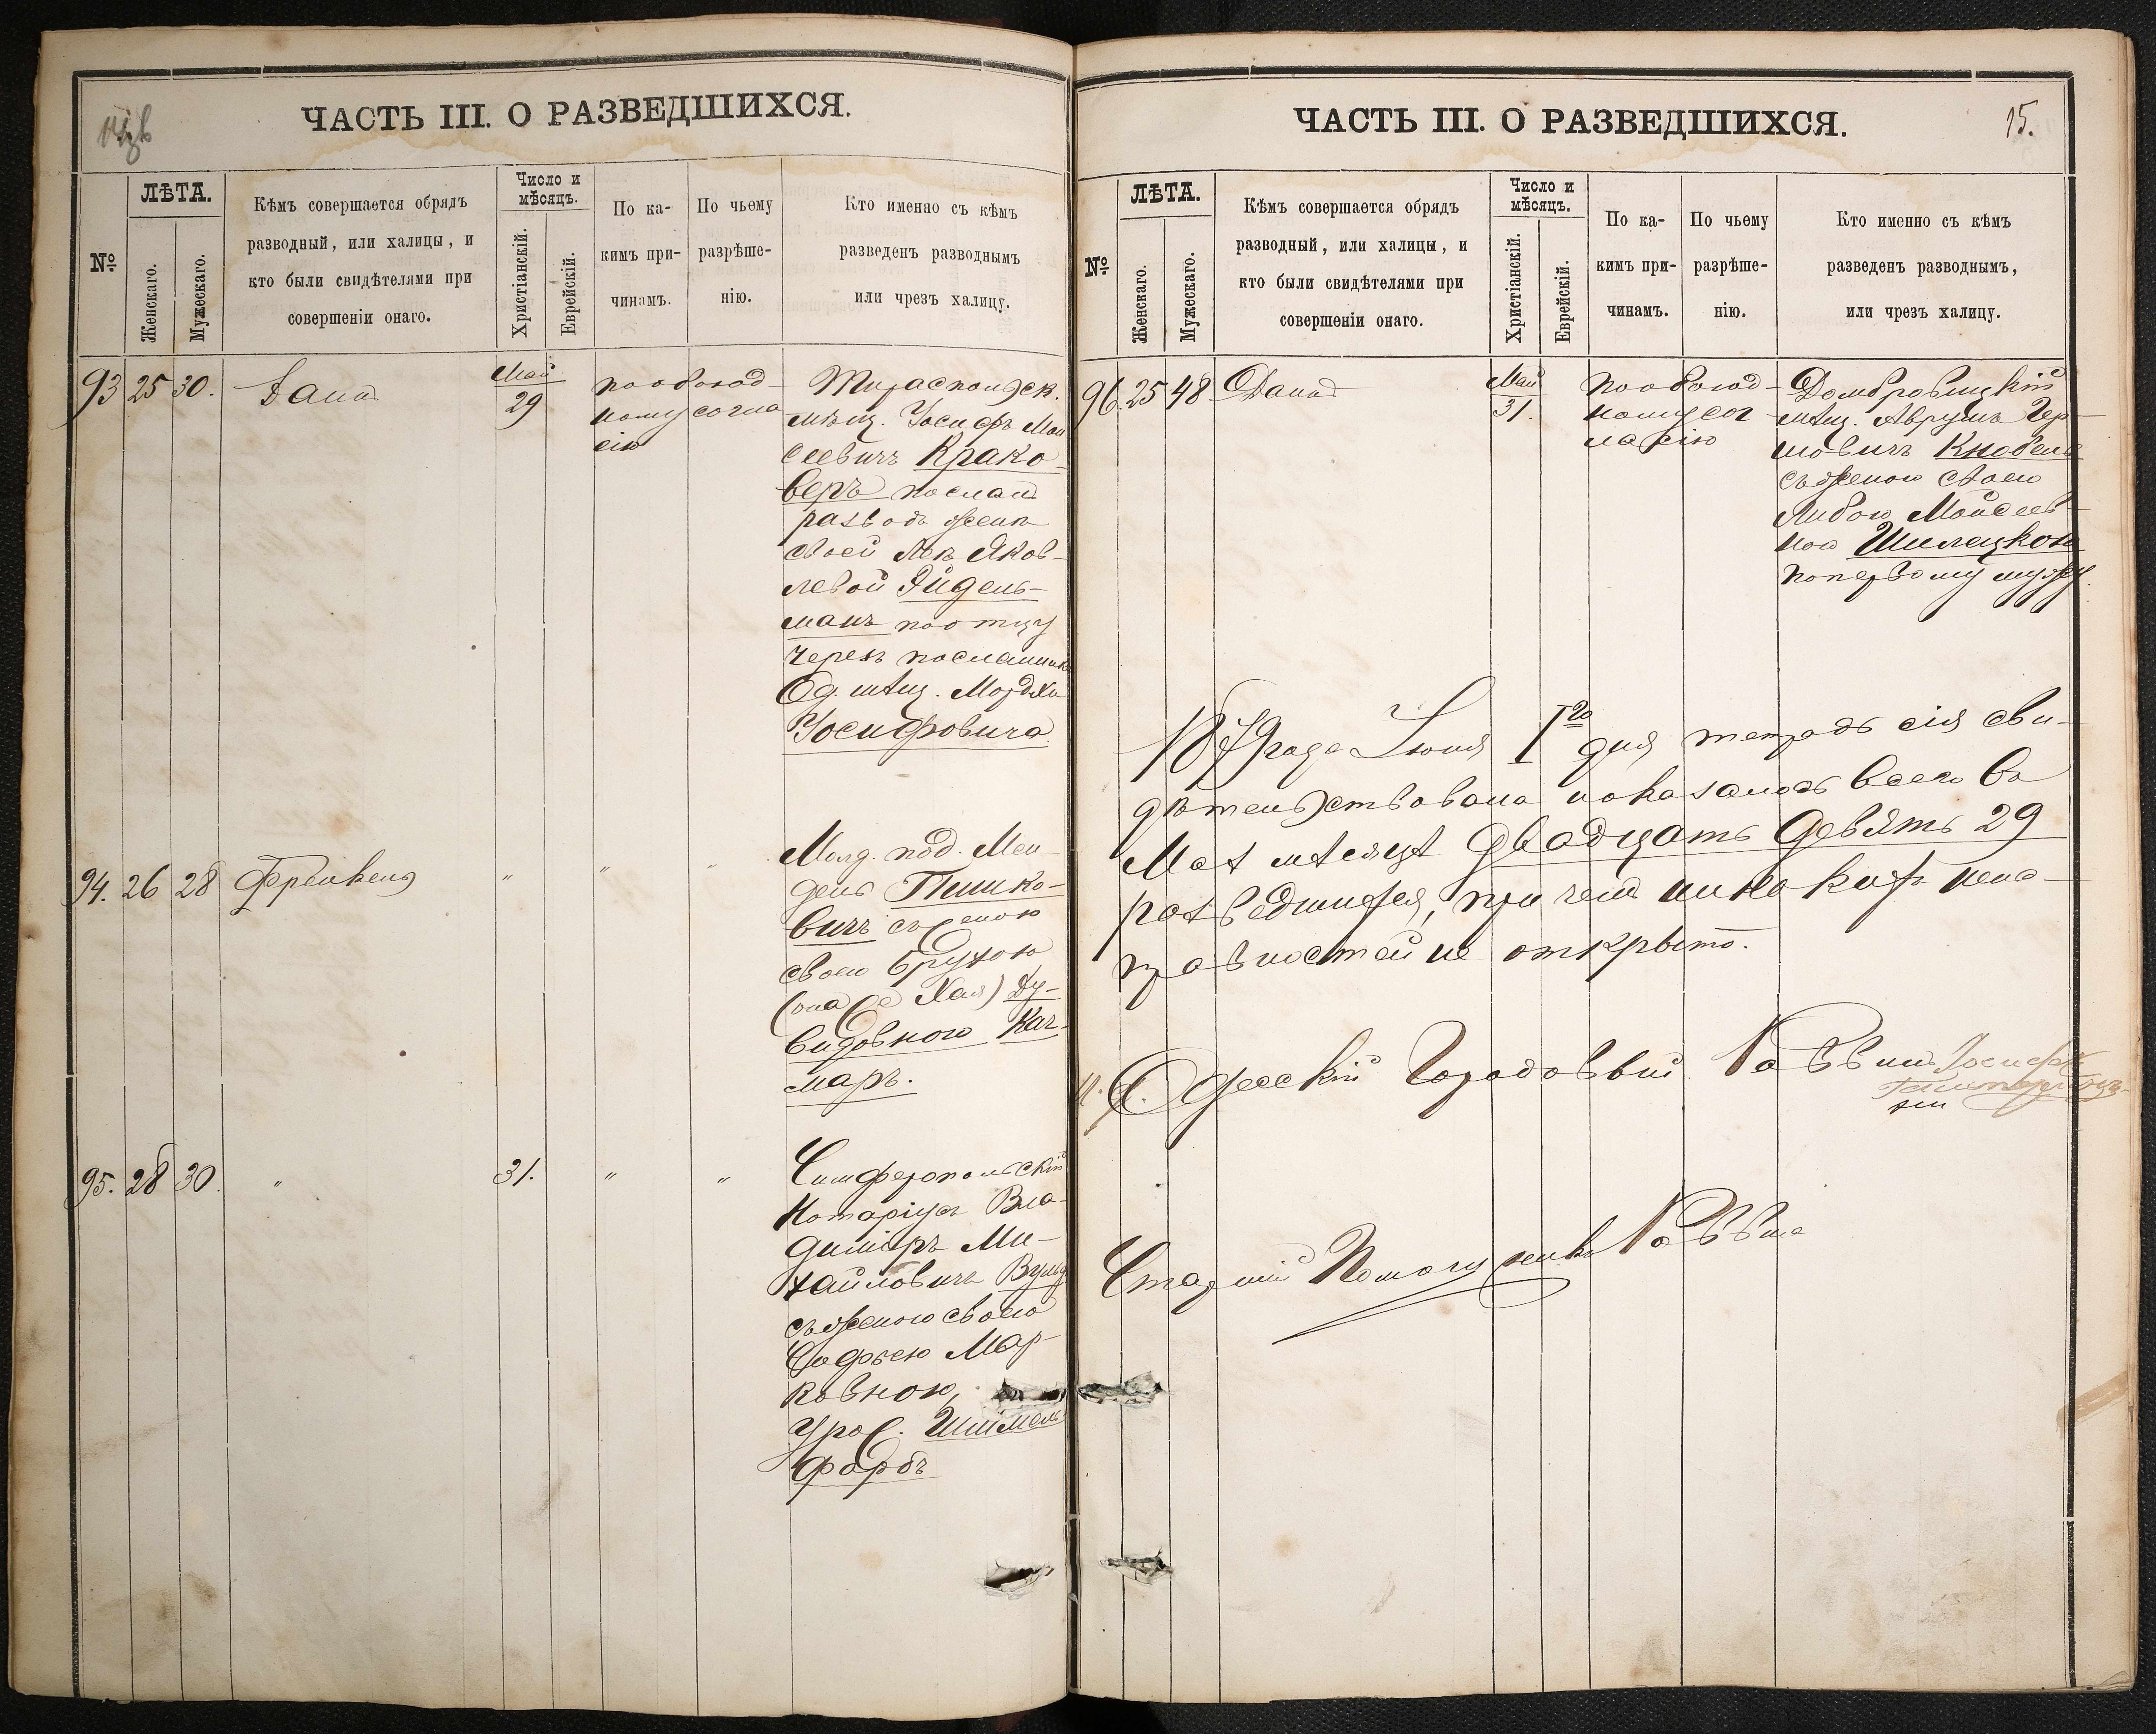 ЧАСТЬ III. О РАЗВЕДШИХСЯ.
№
ЛѢТА.
Женскаго.
Мужескаго.
Кѣмъ совершается обрядъ
разводный, или халицы, и
кто были свидѣтелями при
совершеніи онаго.
Число и
мѣсяцъ.
Христіанскій.
Еврейскій.
По ка-
кимъ при-
чинамъ.
По чьему
разрѣше-
нію.
Кто именно съ кѣмъ
разведенъ разводнымъ
или чрезъ халицу.
93 25 30.
Май
29
по обоюд-
ному согла
сію
Тираспольск.
мѣщ. Іосифъ Мои
сеевичъ Крако-
веръ послалъ
разводъ женѣ
своей Леѣ Яков-
левой Эйдель-
манъ по отцу
черезъ посланника
Од. мѣщ.
Іосифовича.
94. 26 28 Френкель
" " "
Молд. под. Мен-
дель Пишко-
вичъ съ женою
своею Брухою
(она же Хая) Ду-
видовною Кат-
маръ.
95. 28 30. " 31. " "
Симферопольскій
Нотаріусъ Вла-
диміръ Ми-
хайловичъ
съ женою своею
Софьею Мар-
ковною,
урож. Шимель
фарбъ
ЧАСТЬ III. О РАЗВЕДШИХСЯ.
15.
№
ЛѢТА.
Женскаго.
Мужескаго.
Кѣмъ совершается обрядъ
разводный, или халицы, и
кто были свидѣтелями при
совершеніи онаго.
Число и
мѣсяцъ.
Христіанскій.
Еврейскій.
По ка-
кимъ при-
чинамъ.
По чьему
разрѣше-
нію.
Кто именно съ кѣмъ
разведенъ разводнымъ,
или чрезъ халицу.
96. 25 48
Май
31.
по обоюд-
ному сог
ласію
Домбровицкій
мѣщ. Аврумъ Гер-
шовичъ Кнобель
съ женою своею
Либою Мойсеев-
ною Шилецкою
по первому мужу.
1879 года Іюня 1го дня тетрадь сія сви-
дѣтельствована и оказалось всего въ
Маѣ мѣсяцѣ двадцать девять 29
разведшихся, при чемъ никакихъ неис-
правностей не открыто.
И. д. Одесскій Городовый Раввинъ Іосифъ
Старшій Помощникъ Раввина